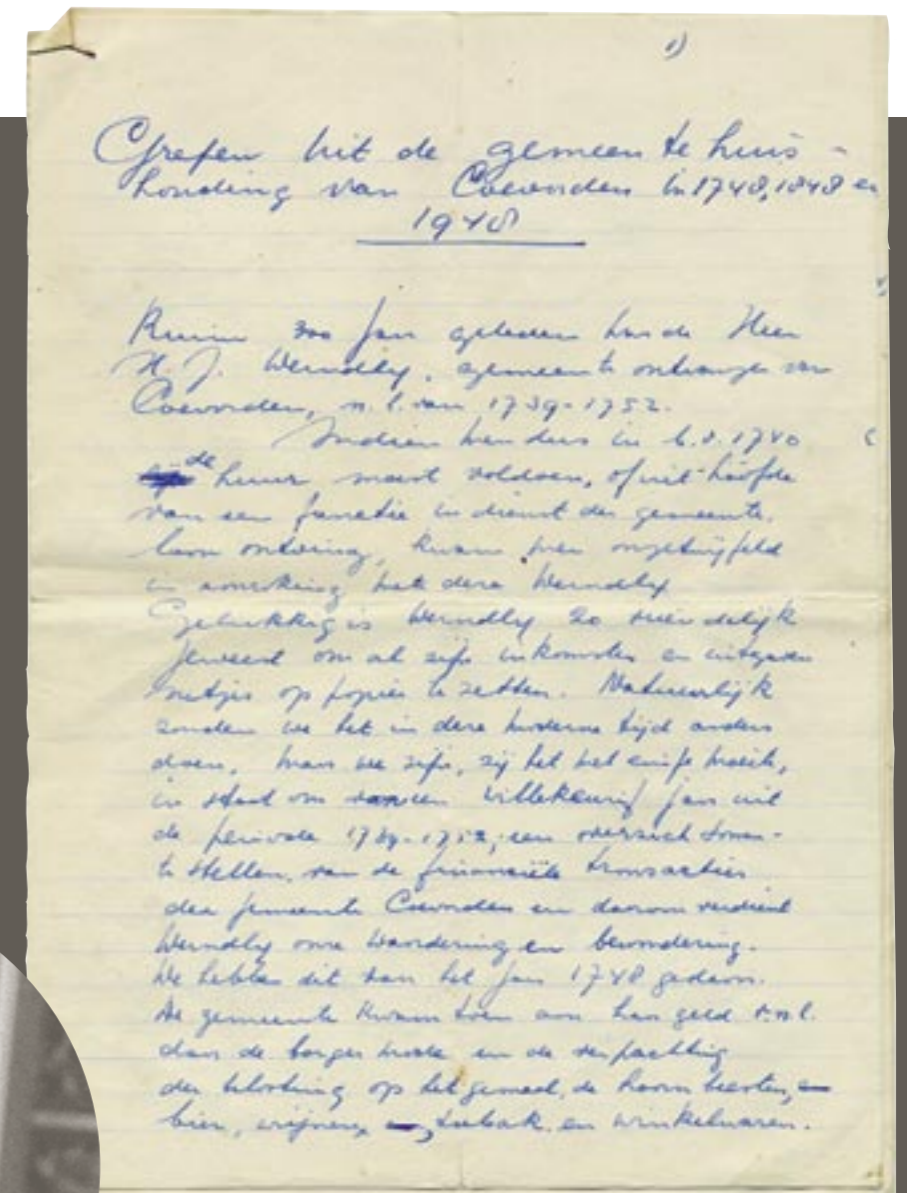 1)
Grepen uit de gemeentehuis-
houding van Coevorden in 1748, 1848 en
1948
Ruim 200 jaar geleden was de Heer
H. J. Werndly, gemeente ontvanger van
Coevorden, n.l. van 1739-1752.
Indien in b.v. 1740
de huur moest voldoen, of uit hoofde
van een functie in dienst der gemeente
loon ontving, kwam men ongetwijfeld
in aanraking met deze Werndly
Gelukkig is Werndly zo vriendelijk
geweest om al zijn inkomsten en uitgaven
netjes op papier te zetten. Natuurlijk
zouden we het in deze moderne tijd anders
doen, maar we zijn, zij het met enige moeite,
in staat om van een willekeurig jaar uit
de periode 1739-1752, een overzicht samen-
te stellen, van de financiële transacties
der gemeente Coevorden en daarom verdient
Werndly onze waardering en bewondering.
We hebben dit van het jaar 1748 gedaan.
De gemeente kwam toen aan haar geld d.m.v.
de verpachting
der belasting op het gemaal, de hoornbeesten,
bier, wijnen, tabak en winkelwaren.